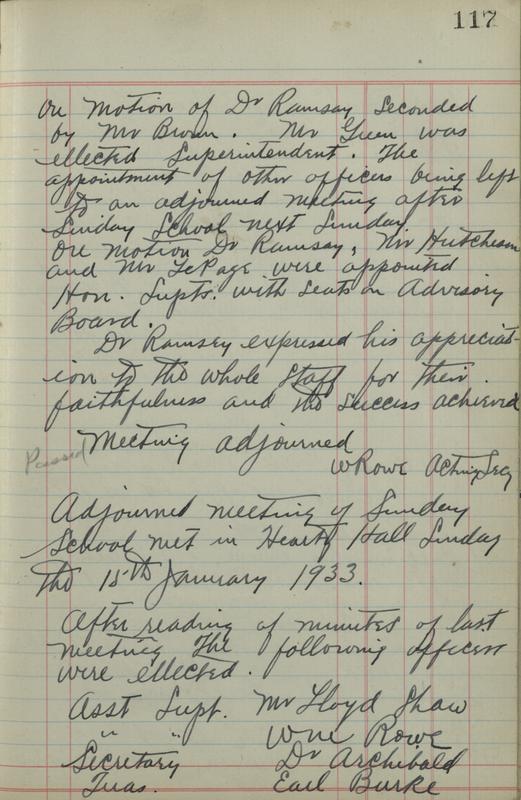 117
On motion of Dr Ramsay seconded
by Mr Brown. Mr Green was
ellected Superintendent. The
appointment of other officers being left
to an adjourned meeting after
Sunday School next Sunday
On motion Dr Ramsay, Mr Hutcheson
and Mr LePage were appointed
Hon. Supts. with seats on Advisory
Board.
Dr Ramsey expressed his appreciat-
ion to the whole Staff for their
faithfulness and the success achieved
Meeting adjourned
Passed
WRowe Acting Secy
Adjourned meeting of Sunday
School met in Heartz Hall Sunday
the 15th January 1933.
After reading of minutes of last
meeting the following officers
were ellected.
Asst Supt. Mr Lloyd Shaw
" " Wm Rowe
Secretary Dr Archibald
Treas. Earl Burke